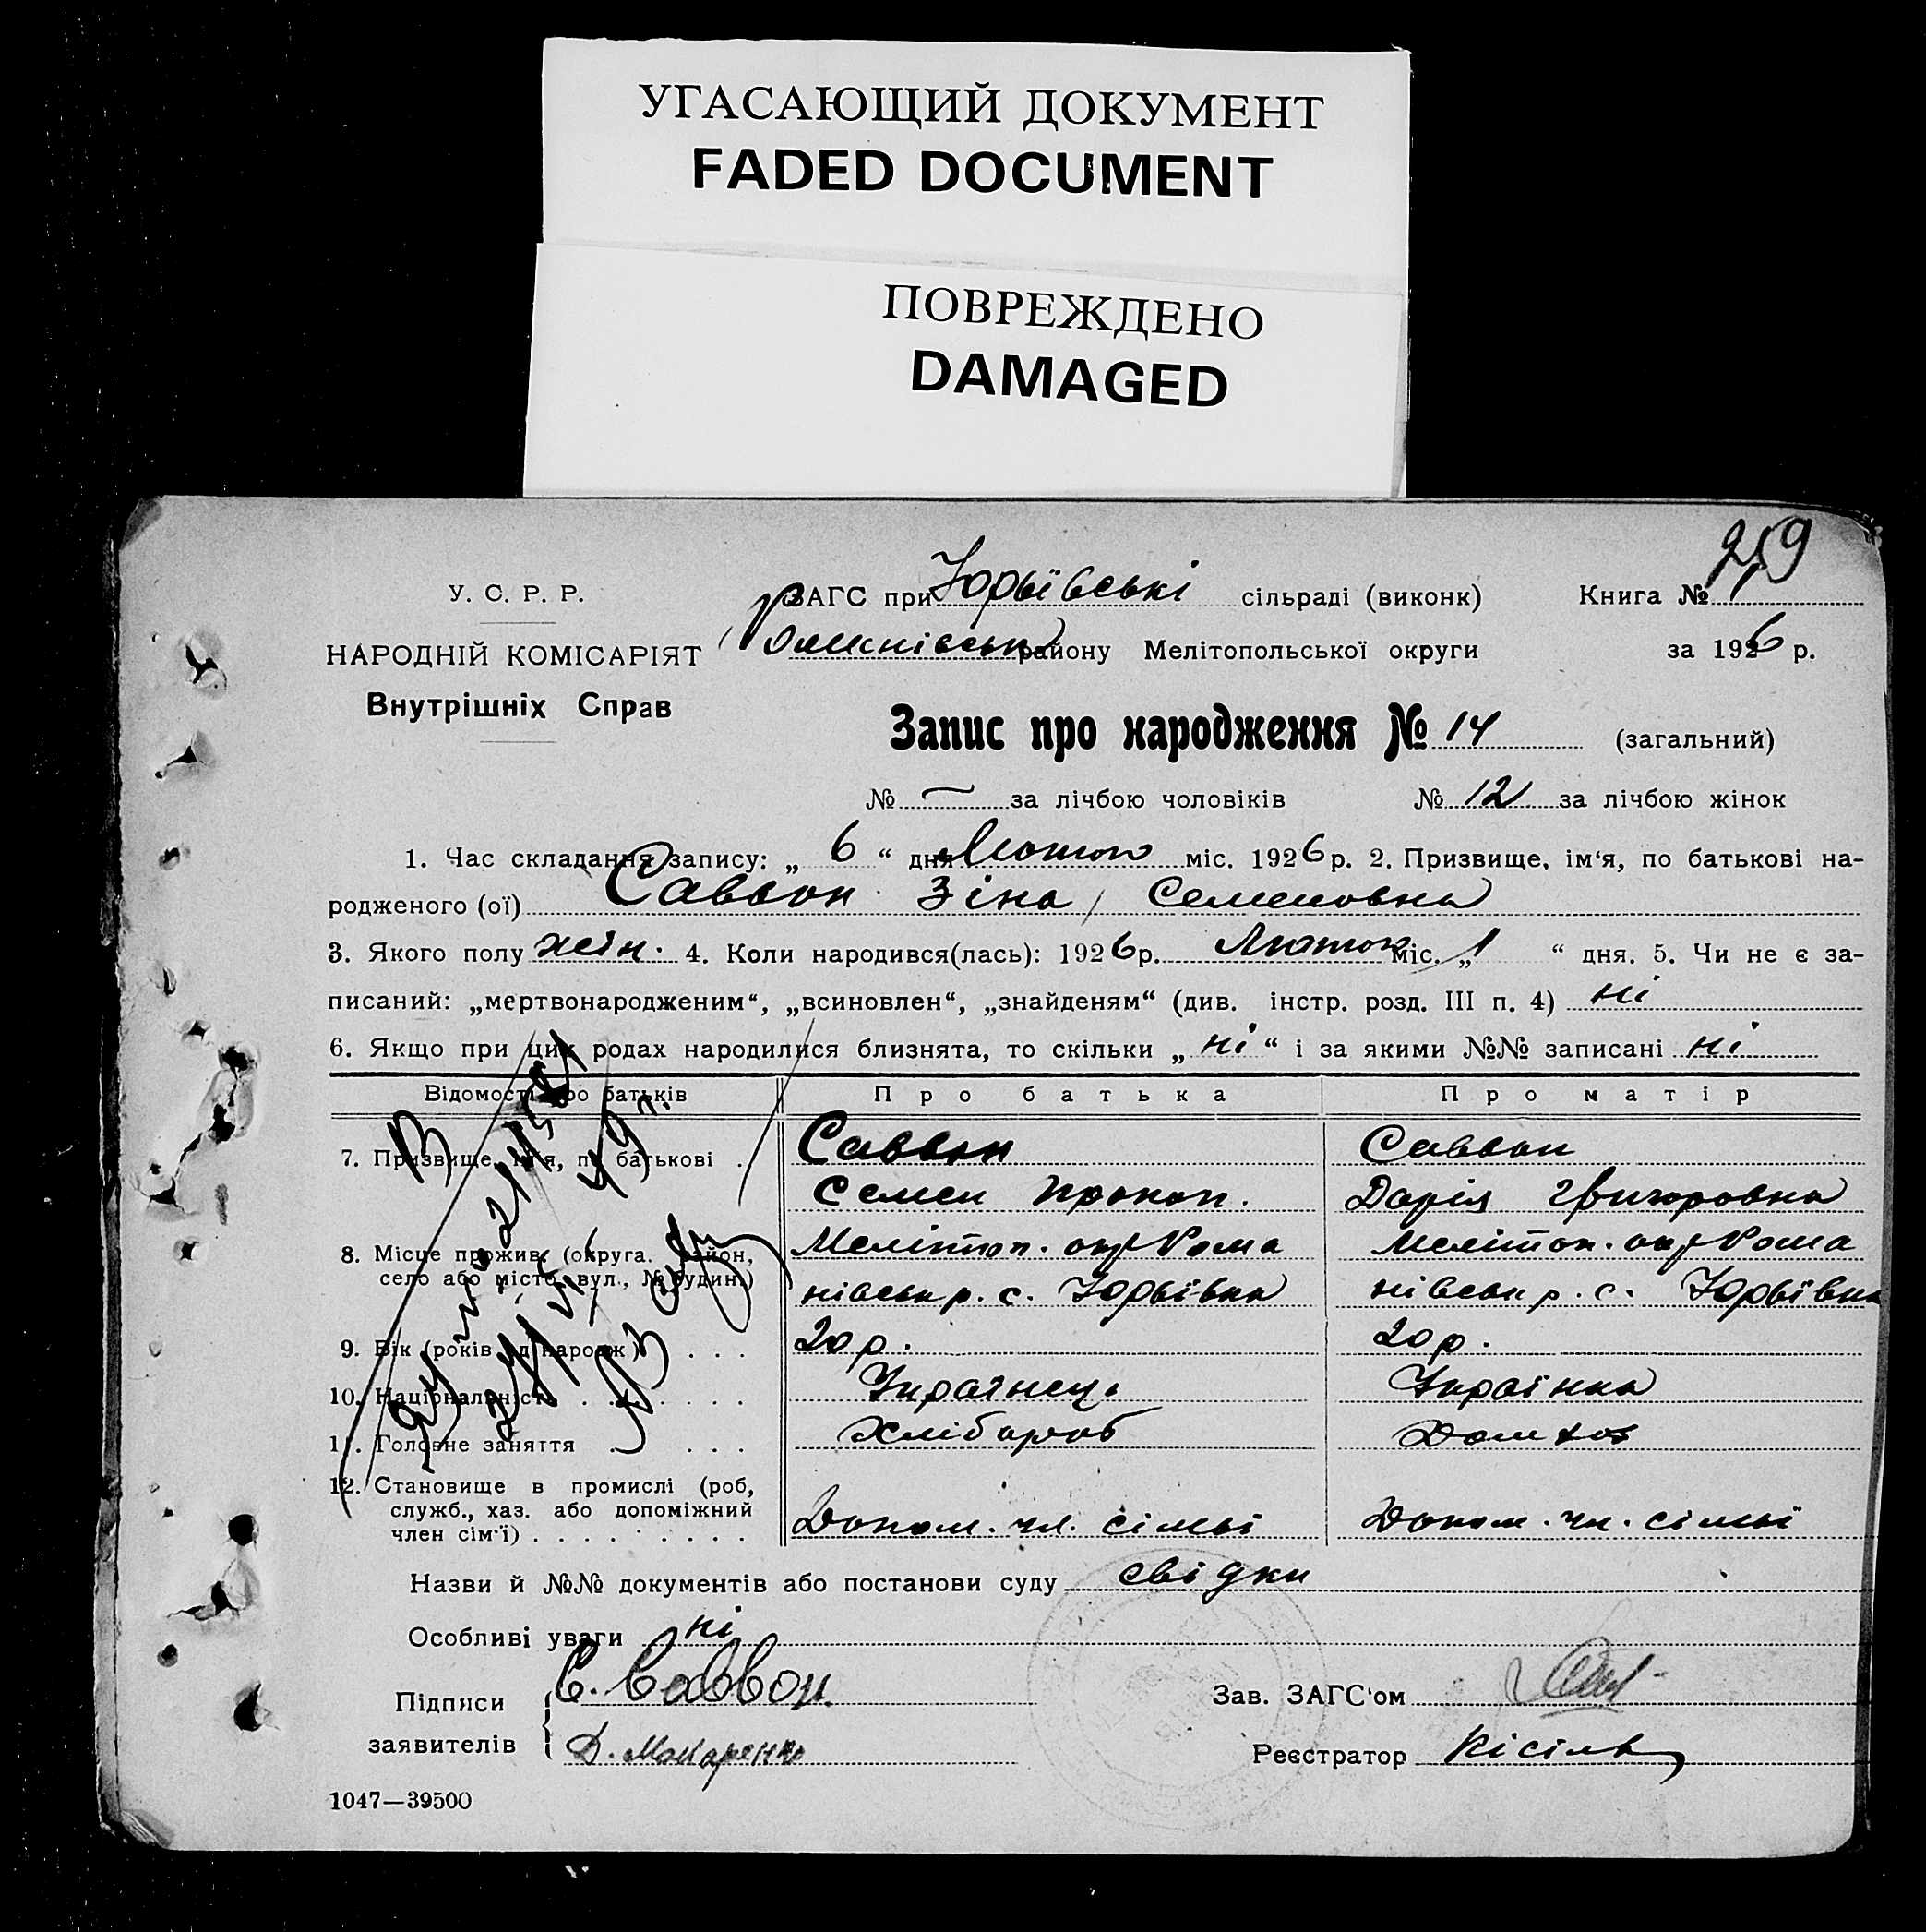 УГАСАЮЩИЙ ДОКУМЕНТ
FADED DOCUMENT
ПОВРЕЖДЕНО
DAMAGED
259
У. С. Р. Р.
ЗАГС при Юрьївські сільраді (виконк)
Книга № 1
НАРОДНІЙ КОМІСАРІЯТ
Внутрішніх Справ
Романівськ району Мелітопольської округи
за 1926 р.
Запис про народження № 14 (загальний)
№ — за лічбою чоловіків № 12 за лічбою жінок
1. Час складання запису: „ 6 “ дня Лютого міс. 1926 р. 2. Призвище, ім‘я, по батькові на-
родженого (ої) Саввон Зіна Семеновна
3. Якого полу жін. 4. Коли народився(лась): 1926 р. Лютого міс. „ 1 “ дня. 5. Чи не є за-
писаний: „мертвонародженим“, „всиновлен“, „знайденям“ (див. інстр. розд. III п. 4) ні
6. Якщо при цих родах народилися близнята, то скільки „ ні “ і за якими №№ записані ні
Відомості про батьків Про батька Про матір
7. Призвище, ім‘я, по батькові . Саввон Саввон
Семен Прокоп. Дарія Григоровна
8. Місце прожив. (округа. район, Мелітоп. окр Рома Мелітоп. окр Рома
село або місто, вул., № будин.) нівськ р. с. Юрьївка нівськ р. с. Юрьївка
9. Вік (років від народж) . . . 20 р. 20 р.
10. Національність . . . . . . Українець Українка
11. Головне заняття . . . . Хлібороб Домхоз
12. Становище в промислі (роб,
служб., хаз. або допоміжний
член сім‘ї) . . . . . . . . Допом. чл. сімьї Допом. чл. сімьї
Назви й №№ документів або постанови суду свідки
Особливі уваги ні
Підписи С. Саввон
Зав. ЗАГС‘ом
заявителів Д. Макаренко
Реєстратор Кісіль
1047—39500